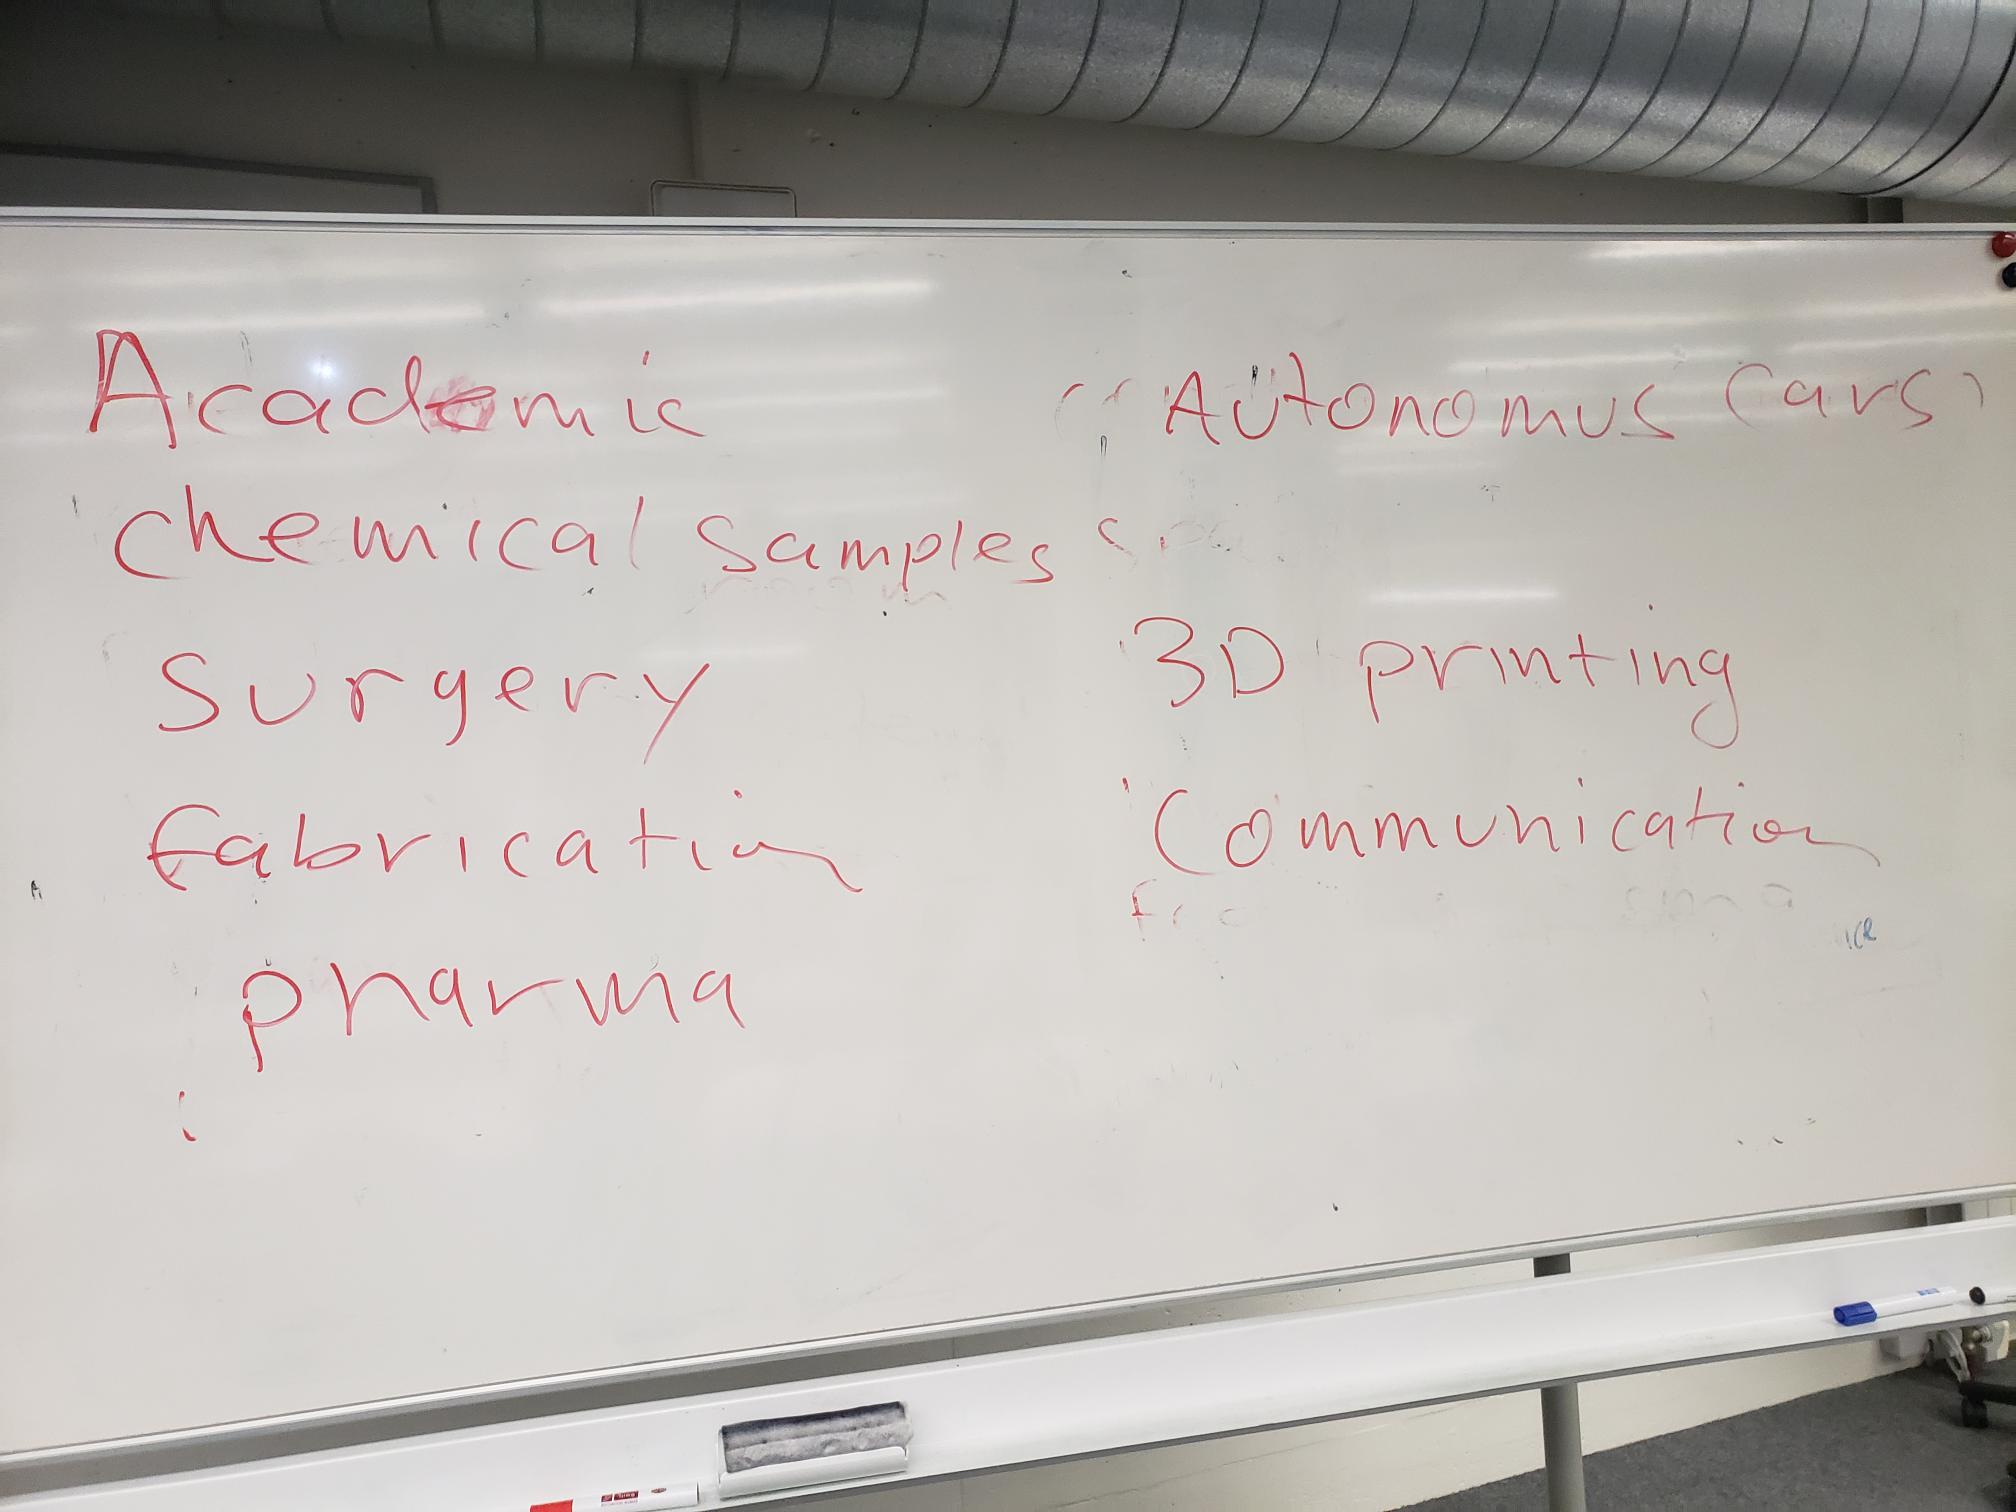 Academic
chemical samples
surgery
fabrication
pharma
Autonomus Cars
3D printing
Communication